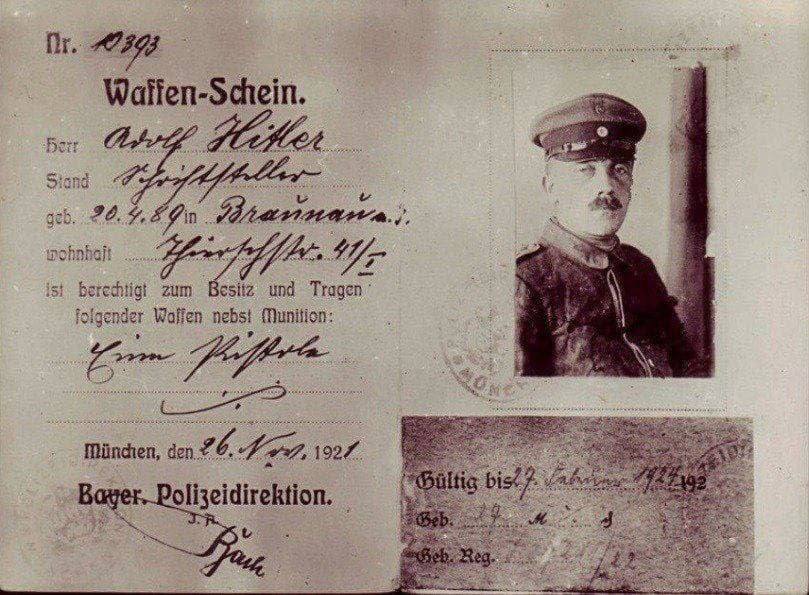 Nr. 10393
Waffen-Schein.
Herr Adolf Hitler
Stand Schriftsteller
geb. 20.4.89 in Braunau a. I.
wohnhaft Thierschstr. 41/I
ist berechtigt zum Besitz und Tragen
folgender Waffen nebst Munition:
Eine Pistole
München, den 26. Nov. 1921
Bayer. Polizeidirektion.
J. A.
MÜNC
Gültig bis 27. Februar 192
Geb. M
Geb. Reg. /22